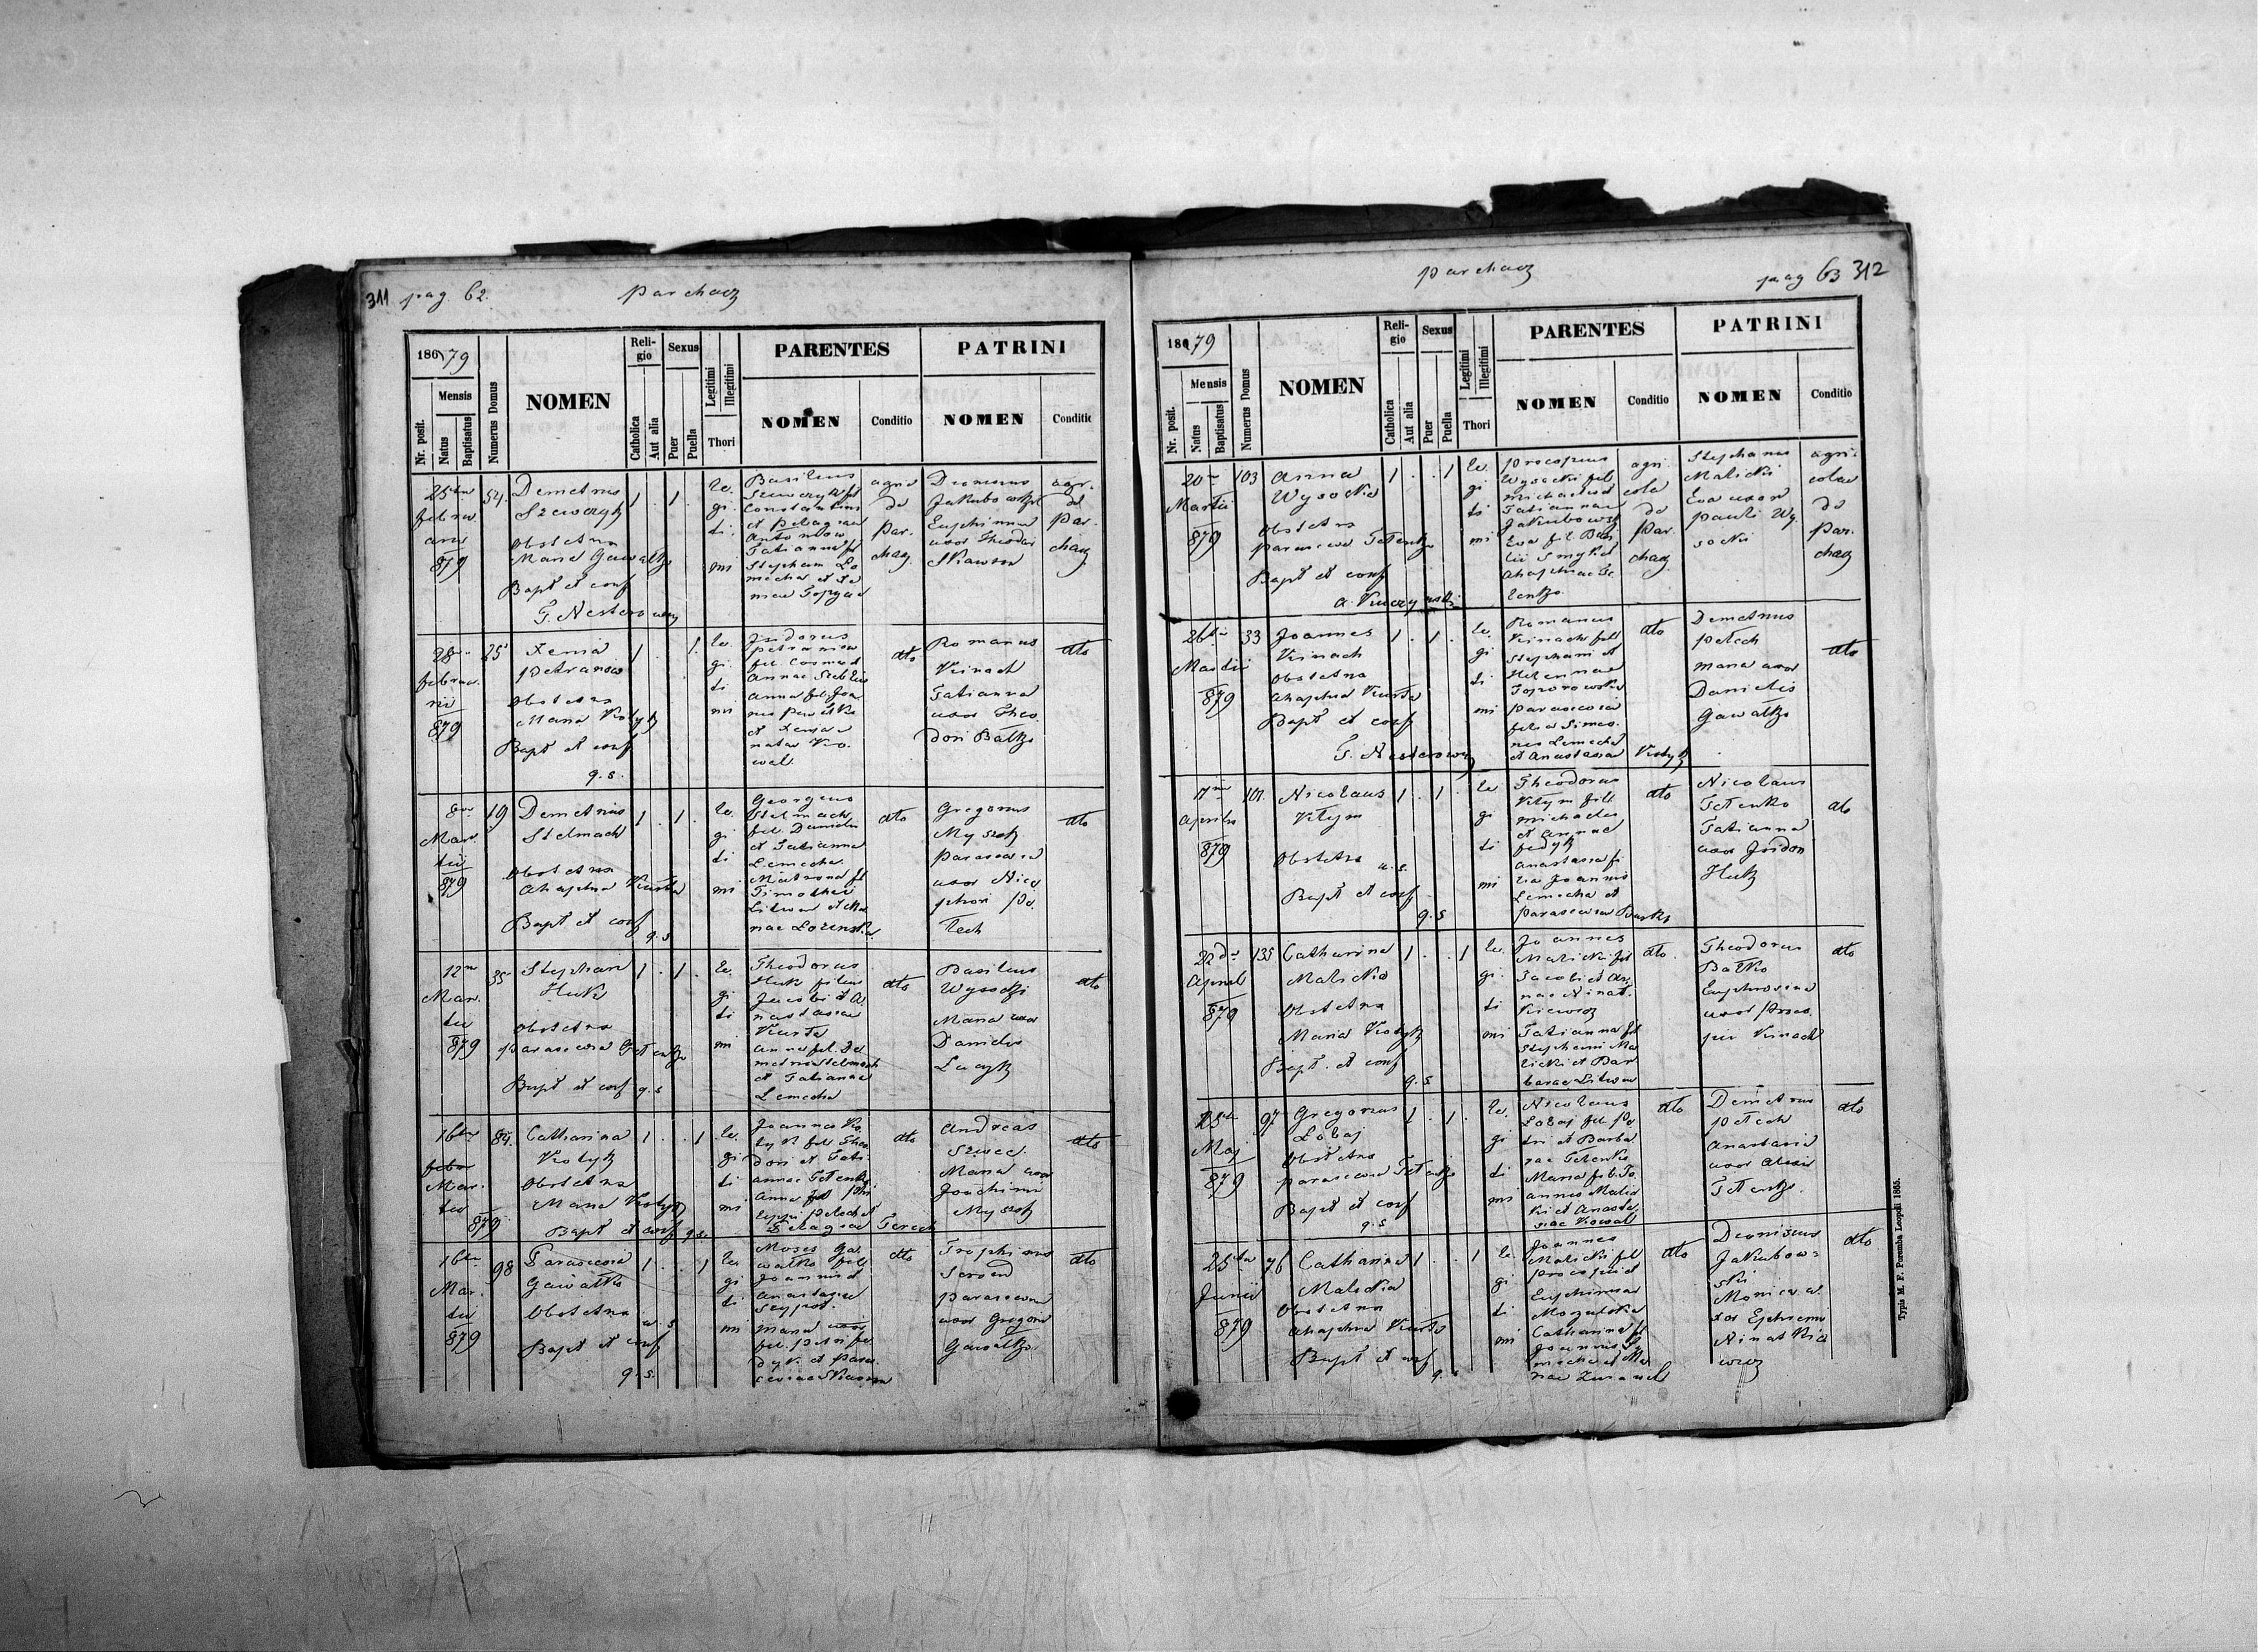 311 pag. 62. Parchacz
1879
Nr. posit.
Mensis
Natus
Baptisatus
Numerus Domus
NOMEN
Religio
Catholica
Aut alia
Sexus
Puer
Puella
Legitimi
Illegitimi
Thori
PARENTES
NOMEN
Conditio
PATRINI
NOMEN
Conditio
25
febru
arii
879
54.
Demetrius
Szewczyk
Obstetrix
Maria Gawalko
Bapt et conf
T. Nesterowicz
1 . 1 .
le.
gi.
ti.
mi
Basilius
Szewczyk fil
Constantini
et Pelagiae
Antonow
Tatianna fil
Stephani Le
mecha et
agric
de
Par.
chacz
Dionisius
Jakubowski
Euphimia
uxor Theodori
Skawron
agr.
de
Par.
chacz
28
februa.
rii
879
25
Xenia
Petranow
Obstetrix
Maria Kotyk
Bapt et conf
q. s.
1 . . 1
le.
gi
ti
mi
Isidorus
Petranow
fil Cosmae et
Annae
Anna fil. Joan
nis
et Xenia
natae Ko.
wal.
dto
Romanus
Kinach
Tatianna
uxor Theo.
dori Balko
dto
8
Mar.
tii
879
19
Demetrius
Stelmach
Obstetrix
Ahaphia Kursta
Bapt et conf
q. s
1 . 1 .
le.
gi
ti
mi
Georgius
Stelmach
fil. Danielis
et Tatianna
Lemecha.
Matrona fil
Timothei
Litwin et An
nae
dto
Gregorius
Myszok
Parascevia
uxor Nice
phori Pe.
tech
dto
12
Mar.
tii
879
35
Stephan
Huk
Obstetrix
Parascevia Tetenko
Bapt et conf q. s
1 . 1 .
le.
gi
ti
mi
Theodorus
Huk filius
Jacobi et A
nastasiae
Kursta
Anna fil. De
metrii Stelmach
et Tatianae
Lemecha
dto
Basilius
Wysocki
Maria uxor
Danielis
Lucyk
dto
16
Mar.
tii
879
84.
Catharina
Kotyk
Obstetrix
Maria Kotyk
Bapt et conf q. s.
1 . . 1
le.
gi
ti
mi
Joannes Ko
tyk fil Theo
dori et Tati.
annae Tetenko
Anna fil Phi
lippi Petech et
Pelagiae Terech
dto
Andreas
Szwec
Maria uxor
Joachimi
Myszok
dto
16
Mar.
tii
879
98
Parascevia
Gawalko
Obstetrix
u. s
Bapt et conf
q. s.
1 . . 1
le
gi
ti
mi
Moses Ga
walko fil
Joannis et
Anastasiae
Maria
fil. Petri fe
dyk et Paras
ceviae Skawron
dto
Trophimus
Parascevia
uxor Gregorii
Gawalko.
dto
Parchacz pag 63 312
1879
Nr. posit.
Mensis
Natus
Baptisatus
Numerus Domus
NOMEN
Religio
Catholica
Aut alia
Sexus
Puer
Puella
Legitimi
Illegitimi
Thori
PARENTES
NOMEN
Conditio
PATRINI
NOMEN
Conditio
20
Martii
879
103
Anna
Wysocka
Obstetrix
Parascevia Tetenko
Bapt et conf
1 . . 1
le.
gi
ti
mi
Procopius
Wysocki fil
Michaelis et
Tatiannae
Jakubowsky
Eva fil Basi
lii Smyk et
Ahaphiae Te
tenko.
agri.
cola
de
Par.
chacz
Stephanus
Malicki
Eva uxor
Pauli Wy.
socki
agri.
colae
de
Par.
chacz
26
Martii
879
33
Joannes
Kinach
Obstetrix
Ahaphia Kursta
Bapt et conf
T. Nesterowicz
1 . 1 .
le.
gi
ti.
mi
Romanus
Kinach fil
Stephani et
Helennae
Toporowska
Parascevia
filia Simeo.
nis Lemecha
et Anastasia Kotyk
dto
Demetrius
Petech
Maria uxor
Danielis
Gawalko
dto
Aprilis
879
101.
Nicolaus
Klym
Obstetrix
u. s.
Bapt et conf
q. s
1 . 1 .
le
gi
ti
mi
Theodorus
Klym fil
Michaelis
et Annae
fedyk
Anastasia fi
lia Joannis
Lemecha et
Parascevia
dto
Nicolaus
Tetenko
Tatianna
uxor Isidori
Huk
dto
22
Aprilis
879
135
Catharina
Malicka
Obstetrix
Maria Kotyk
Bapt. et conf
q. s
1 . . 1
le.
gi.
ti
mi
Joannes
Malicki fil
Jacobi et An.
nae Ninat.
kiewicz
Tatianna fil
Stephani Ma
licki et Bar
barae Litwin
dto.
Theodorus
Balko
Euphrosina
uxor Proco.
pii Kinach
dto
25
Maj
879
97
Gregorius
Lobaj
Obstetrix
Parascevia Tetenko
Bapt et conf
q. s
1 . 1 .
le.
gi
ti
mi
Nicolaus
Lobaj fil Pe
tri et Barba
rae Tetenko
Maria fil. Jo
annis Malic
ki et Anasta
siae Kowal
dto
Demetrius
Petech
Anastasia
uxor Alexii
Tetenko.
dto
25
Junii
879
76
Catharina
Malicka
Obstetrix
Ahaphia Kursta
Bapt et conf
q. s
1 . . 1
le.
gi
ti
mi
Joannes
Malicki fil
Procopii et
Euphimiae
Catharina fil
Joannis
dto
Dionisius
Jakubow=
ski
Monica u
xor Ephremi
Ninatkie
wicz
dto
Typis M. F. Poremba Leopoli 1865.